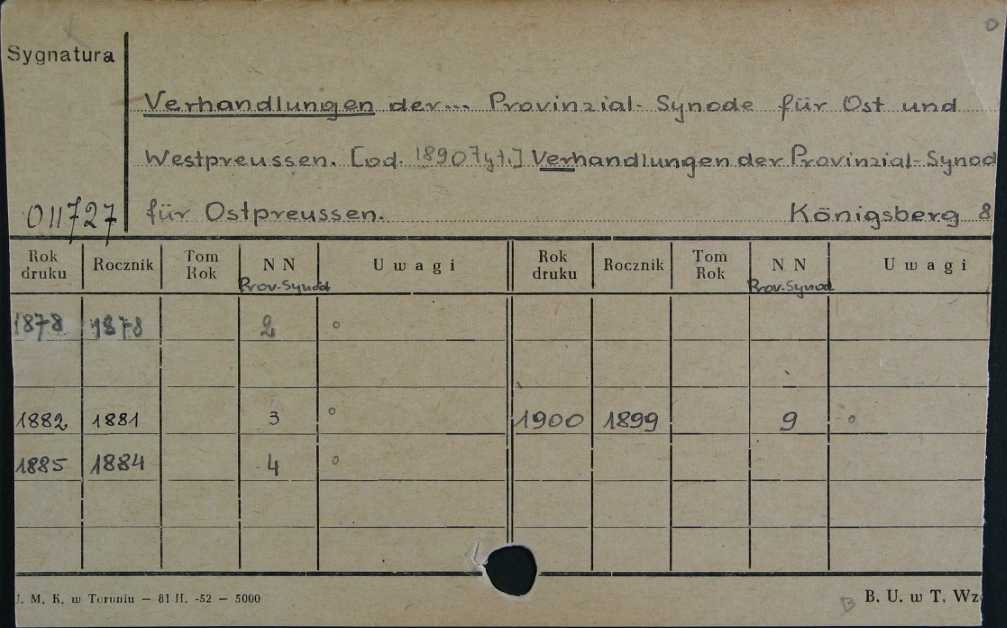 Sygnatura
Verhandlungen der... Provinzial-Synode für Ost und
Westpreussen. [od. 1890 7yt.] Verhandlungen der Provinzial-Synod
011727 für Ostpreussen. Königsberg 8
Rok druku Rocznik Tom Rok NN Uwagi Rok druku Rocznik Tom Rok NN Uwagi
Prov.-Synod Prov.-Synod
1878 1878 2 °
1882 1881 3 ° 1900 1899 9 °
1885 1884 4 °
U. M. K. w Toruniu — 81 H. -52 — 5000 B B. U. w T. Wz